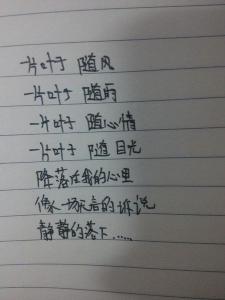 一片叶子 随风
一片叶子 随雨
一片叶子 随心情
一片叶子 随目光
降落在我的心里
像一场无言的诉说
静静的落下……